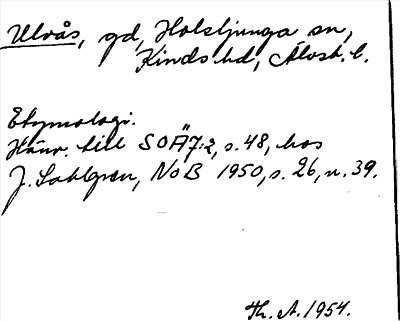 Ulvås, gd, Holsljunga sn,
Kinds hd, Älvsb. l.
Etymologi.
Hänv. till SOÄ 7:2, s. 48, hos
J. Sahlgren, NoB 1950, s. 26, n. 39.
Th. A. 1954.